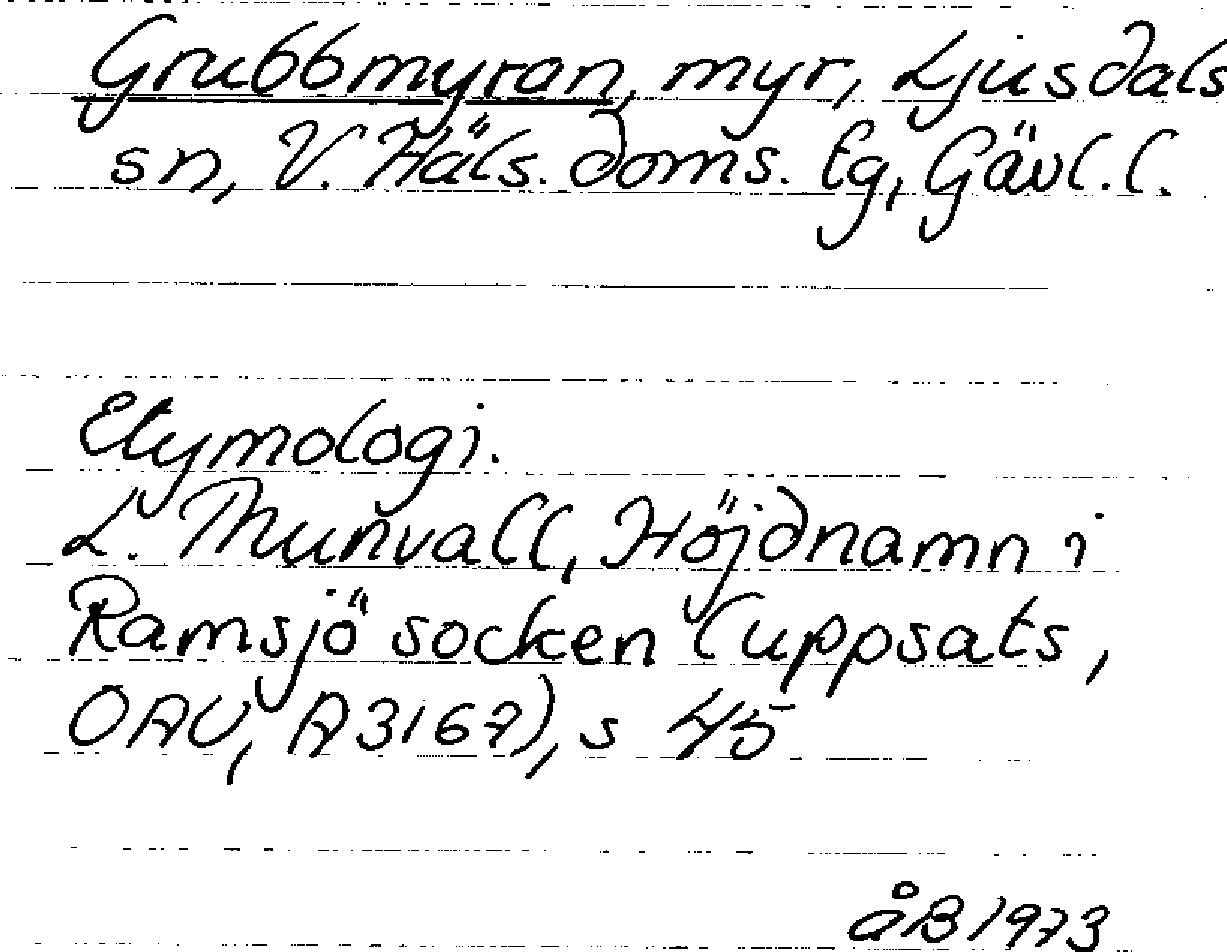 Grubbmyran, myr, Ljusdals
sn, V. Häls. doms. tg, Gävl. l.
Etymologi.
L. Thunvall, Höjdnamn i
Ramsjö socken (uppsats,
OAU, A3167), s 45
åB 1973